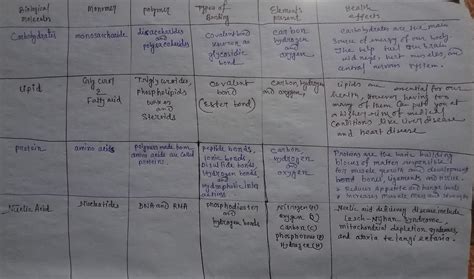 Biological molecules | Monomer | polymer | Types of Bonding | Elements present | Health effects
Carbohydrates | monosaccharide | disaccharides and polysaccharides | Covalent bond known as glycosidic bond | carbon hydrogen and oxygen | carbohydrates are the main source of energy of our body. The help fuel our brain, kidneys, heart muscles, and central nervous system.
Lipid | Glycerol & Fatty acid | Triglycerides, Phospholipids waxes and Steroids | Covalent bond (Ester bond) | Carbon, hydrogen and oxygen, | Lipids are essential for our health, However having too many of them can put you at a higher risk of medical conditions like liver disease and heart disease
protein | amino acids | polymers made from amino acids are called proteins | peptide bonds, ionic bonds, Disulfide bonds, Hydrogen bonds and hydrophobic interactions | Carbon hydrogen and oxygen | Proteins are the basic building blocks of matter responsible for muscle growth and development board bones, ligaments and tissue
Reduces appetite and hunger levels
Increases muscle mass and strength
Nucleic Acid | Nucleotides | DNA and RNA | phosphodiester and hydrogen bonds | Nitrogen (N) oxygen (O) carbon (C) phosphorous (P) Hydrogen (H) | Nucleic acid deficiency diseases include Lesch-Nyhan Syndrome, mitochondrial depletion syndromes, and ataxia telangiectasia.